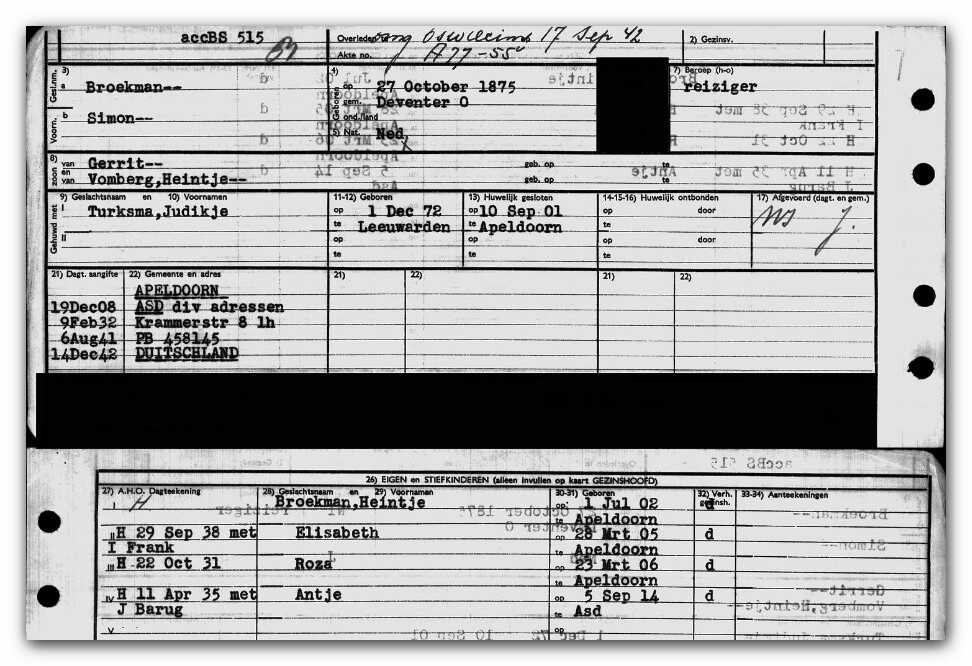 accBS 515
Overleden te Oswiecim 17 Sep 42
2) Gezinsv.
Akte no. A77-55
Gesl.nm. 3) a Broekman--
4) Geboren op 27 October 1875
gem. Deventer O
ond./land
5) Nat. Ned.
7) Beroep (h-o)
reiziger
Voorn. b Simon--
8) zoon van Gerrit-- geb. op te
en van Vomberg,Heintje-- geb. op te
9) Geslachtsnaam en 10) Voornamen
11-12) Geboren
13) Huwelijk gesloten
14-15-16) Huwelijk ontbonden
17) Afgevoerd (dagt. en gem.)
Gehuwd met
I Turksma,Judikje
op 1 Dec 72
te Leeuwarden
op 10 Sep 01
te Apeldoorn
op door
te
II
op
te
op
te
op door
te
21) Dagt. aangifte 22) Gemeente en adres 21) 22) 21) 22)
APELDOORN
19Dec08 ASD div adressen
9Feb32 Krammerstr 8 1h
6Aug41 PB 458145
14Dec42 DUITSCHLAND
accBS 515
26) EIGEN en STIEFKINDEREN (alleen invullen op kaart GEZINSHOOFD)
27) A.H.O. Dagteekening 28) Geslachtsnaam en 29) Voornamen 30-31) Geboren 32) Verh. gezinsh. 33-34) Aanteekeningen
I H Broekman,Heintje op 1 Jul 02 d
te Apeldoorn
II H 29 Sep 38 met Elisabeth op 28 Mrt 05 d
I Frank te Apeldoorn
III H 22 Oct 31 Roza op 23 Mrt 06 d
te Apeldoorn
IV H 11 Apr 35 met Antje op 5 Sep 14 d
J Barug te Asd
V op